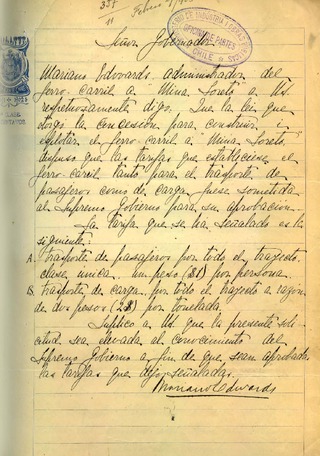 Señor Gobernador
Mariano Edwards administrador del
ferro-carril a Mina Loreto a US.
respetuosamente digo: Que la lei que
otorgó la concesión para construir i
esplotar el ferro-carril a Mina Loreto,
dispuso que las tarifas que estableciese el
ferro-carril tanto para el trasporte de
pasajeros como de carga fuese sometida
al Supremo Gobierno para su aprobacion.
La tarifa que se ha señalado es la
siguiente:
A. trasporte de pasajeros por todo el trayecto
clase única un peso ($1) por persona.
B. trasporte de carga por todo el trayecto a razón
de dos pesos (2$) por tonelada.
Suplico a US que la presente soli-
citud sea elevada al conocimiento del
Supremo Gobierno a fin de que sean aprobadas
las tarifas que dejo señaladas.
Mariano Edwards
OFICINA DE PARTES
CHILE